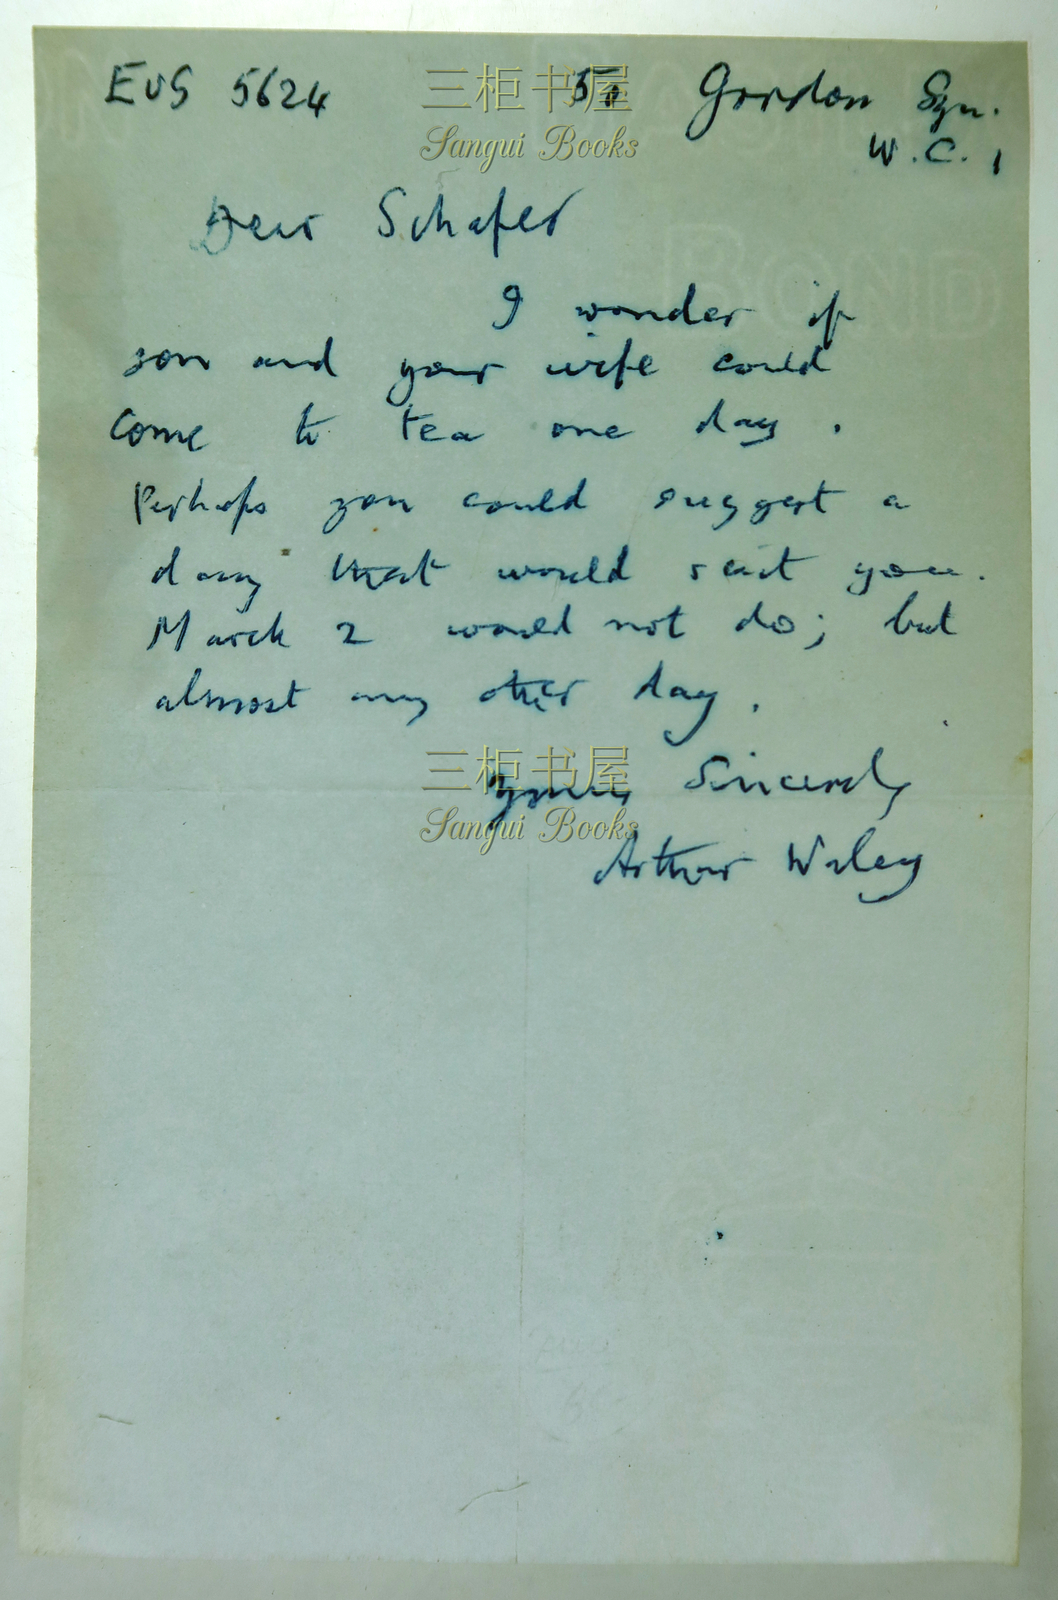 EUS 5624 50 Gordon Sqn.
W.C.1
Dear Schafer
I wonder if
you and your wife could
come to tea one day.
Perhaps you could suggest a
day that would suit you.
March 2 would not do; but
almost any other day.
Yours Sincerely
Arthur Waley
三柜书屋
Sangui Books
三柜书屋
Sangui Books
BOND